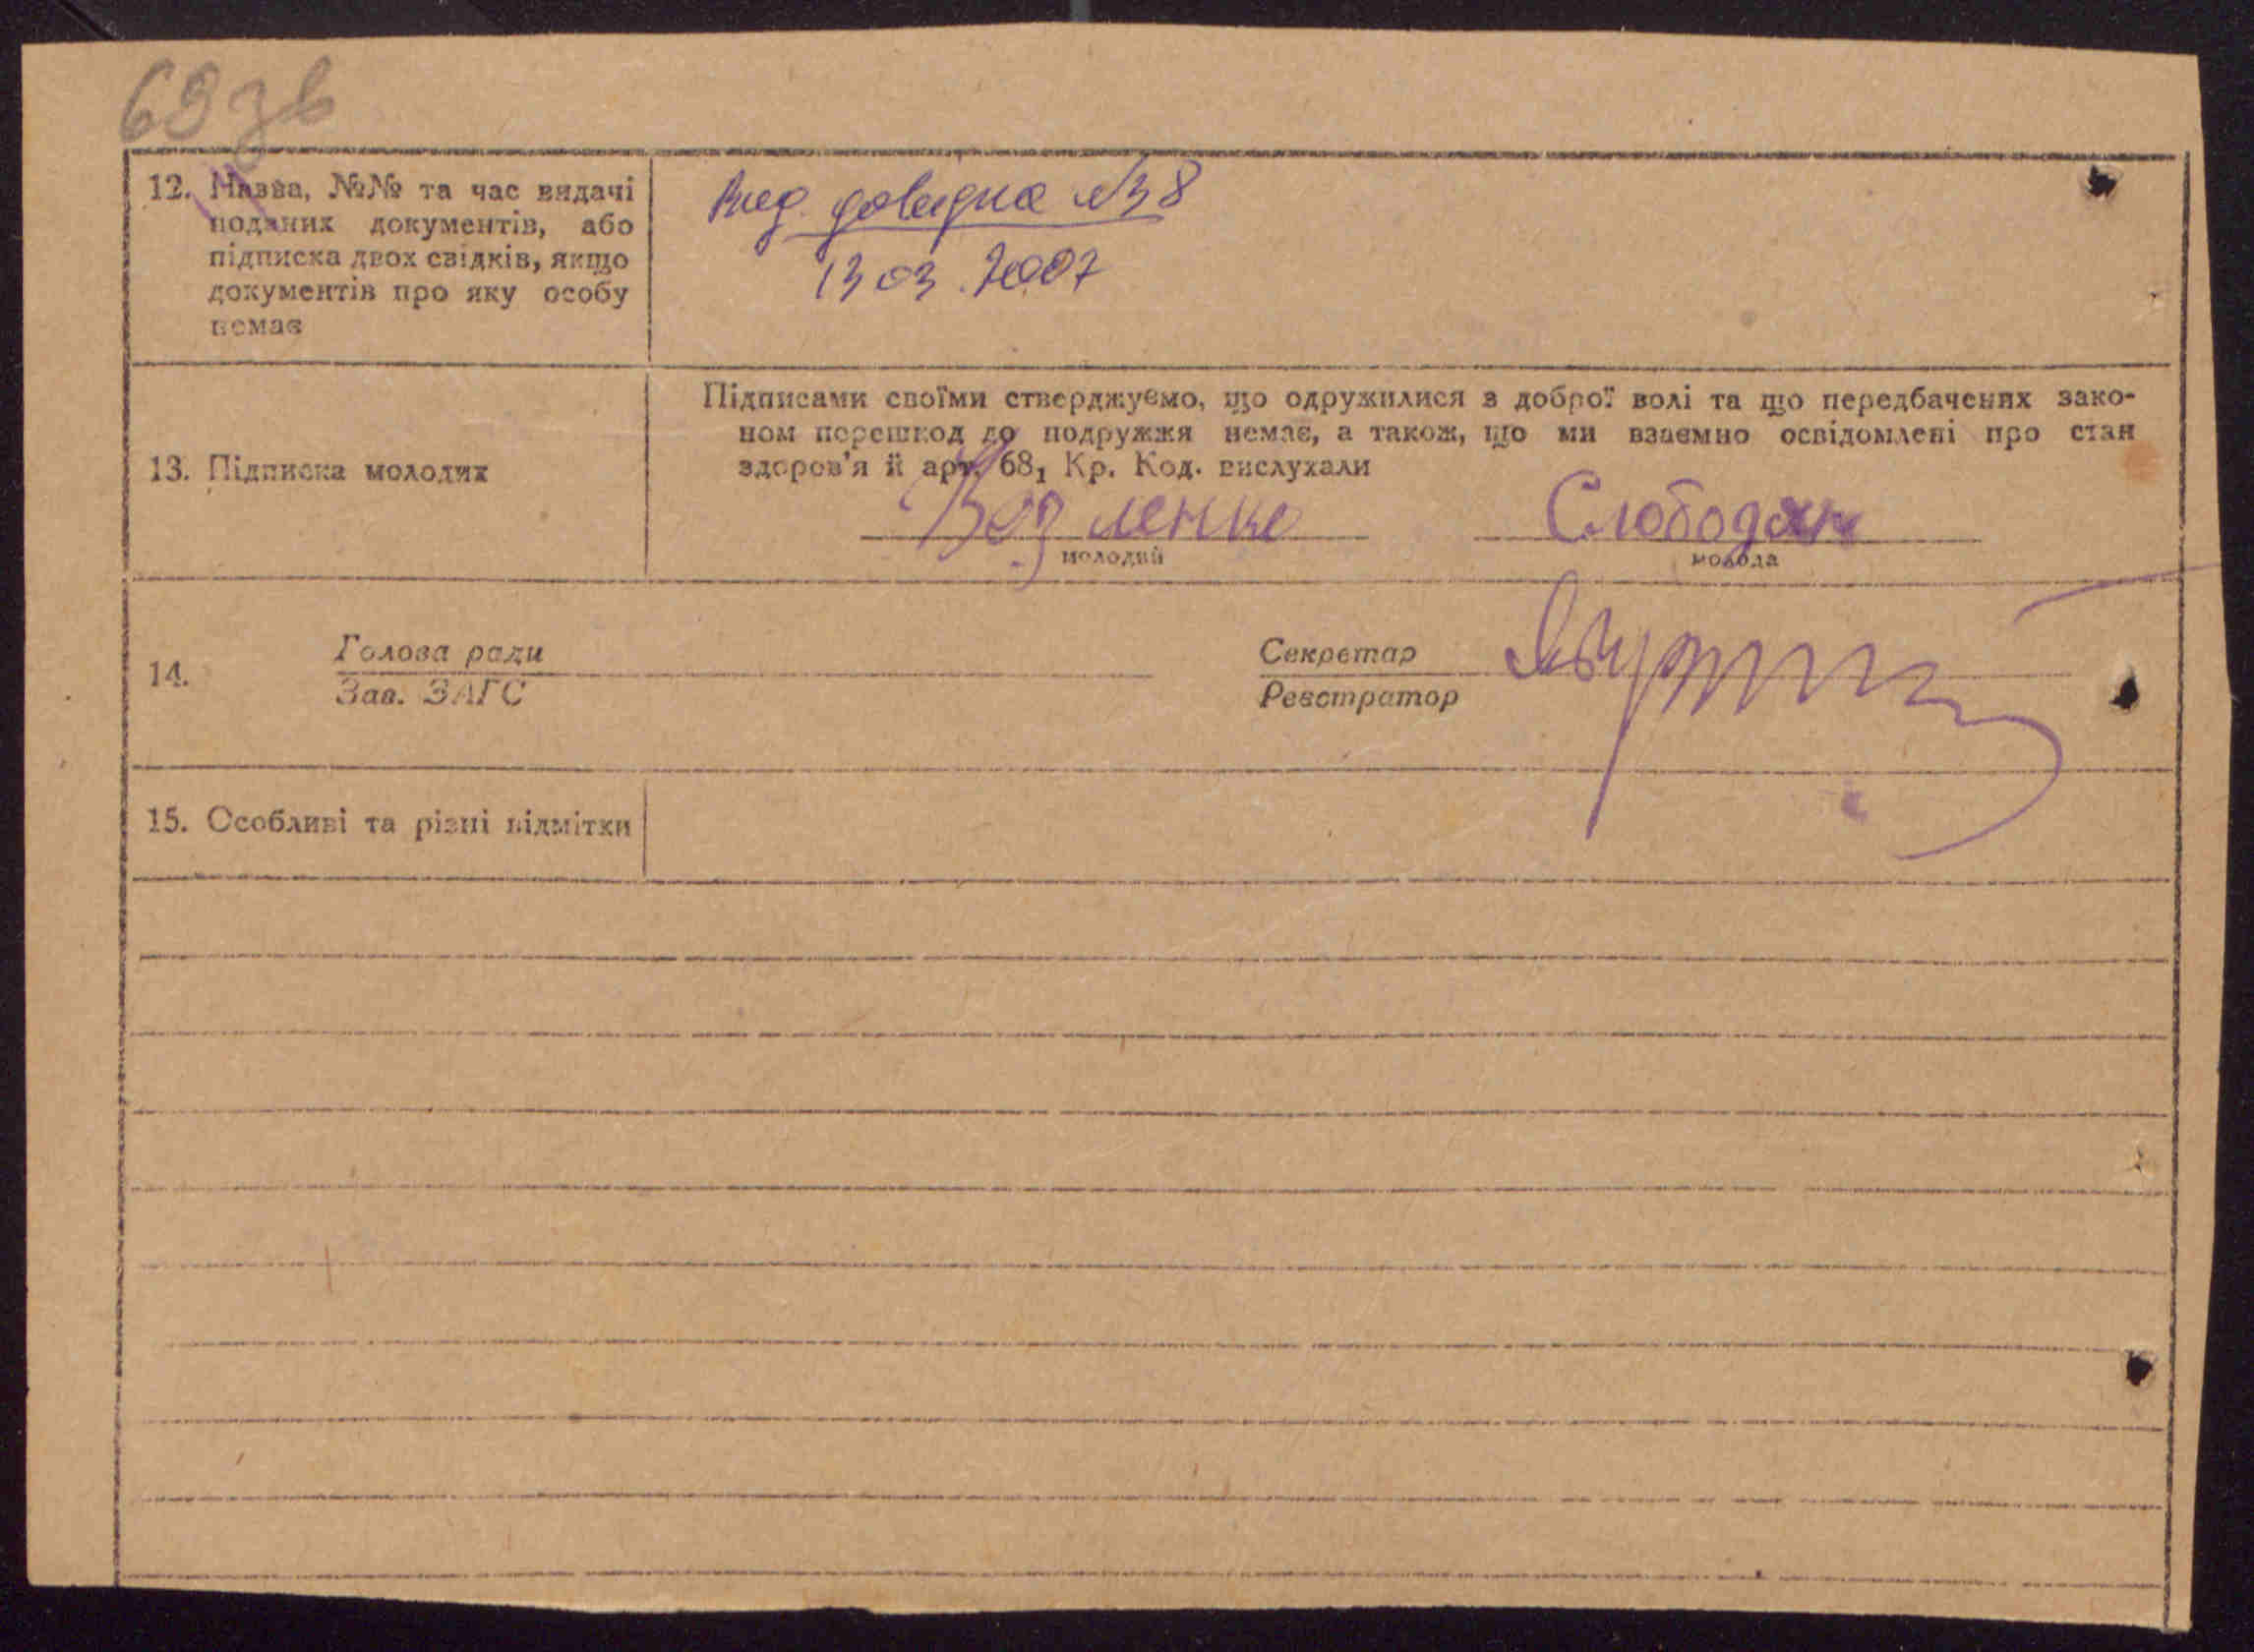 69 зв
12. Назва, №№ та час видачі
поданих документів, або
підписка двох свідків, якщо
документів про яку особу
немає
Вид. довідка №38
13 03. 2007
13. Підписка молодих
Підписами своїми стверджуємо, що одружилися з доброї волі та що передбачених зако-
ном перешкод до подружжя немає, а також, що ми взаємно освідомлені про стан
здоров'я й арт. 68₁ Кр. Код. вислухали
Слободян
молодий
молода
14.
Голова ради
Зав. ЗАГС
Секретар
Реєстратор
15. Особливі та різні відмітки